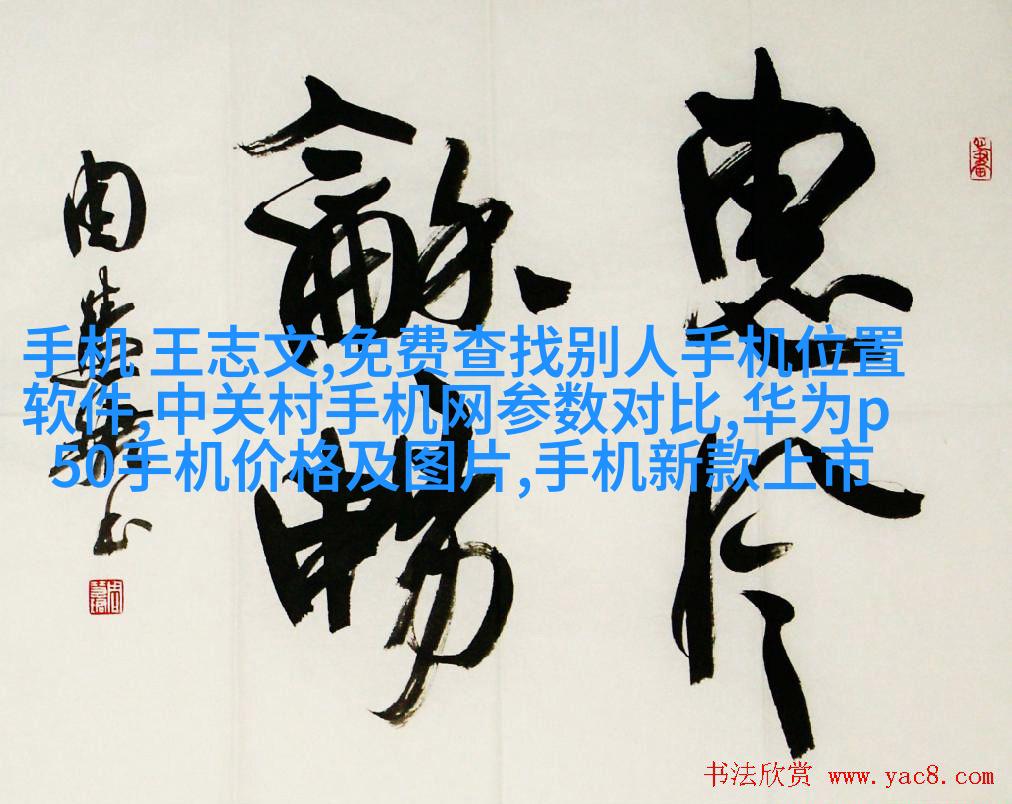 惠风
龢畅
周慧珺书
手机 王志文,免费查找别人手机位置
软件,中关村手机网参数对比,华为p
50手机价格及图片,手机新款上市
书法欣赏 www.yac8.com